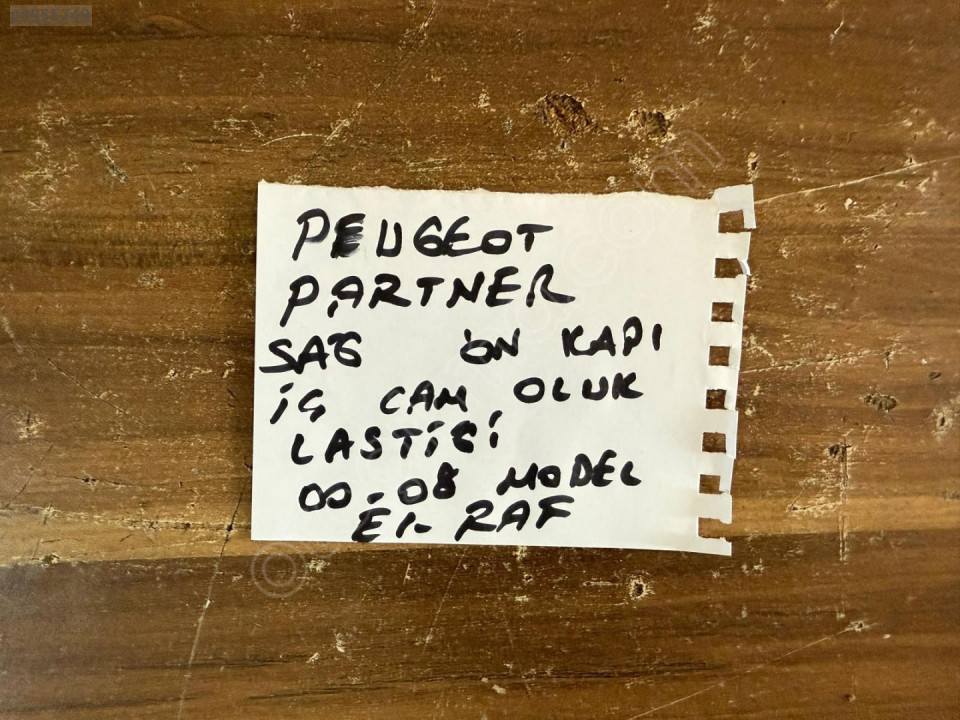 PEUGEOT
PARTNER
SAĞ ÖN KAPI
İÇ CAM OLUK
LASTİĞİ
00-08 MODEL
E1- RAF